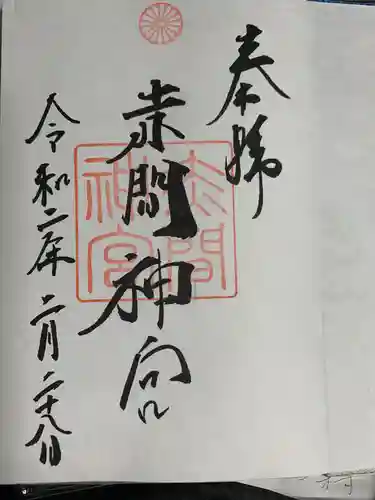 奉拝
赤間神宮
令和二年二月二十八日
赤間
神宮